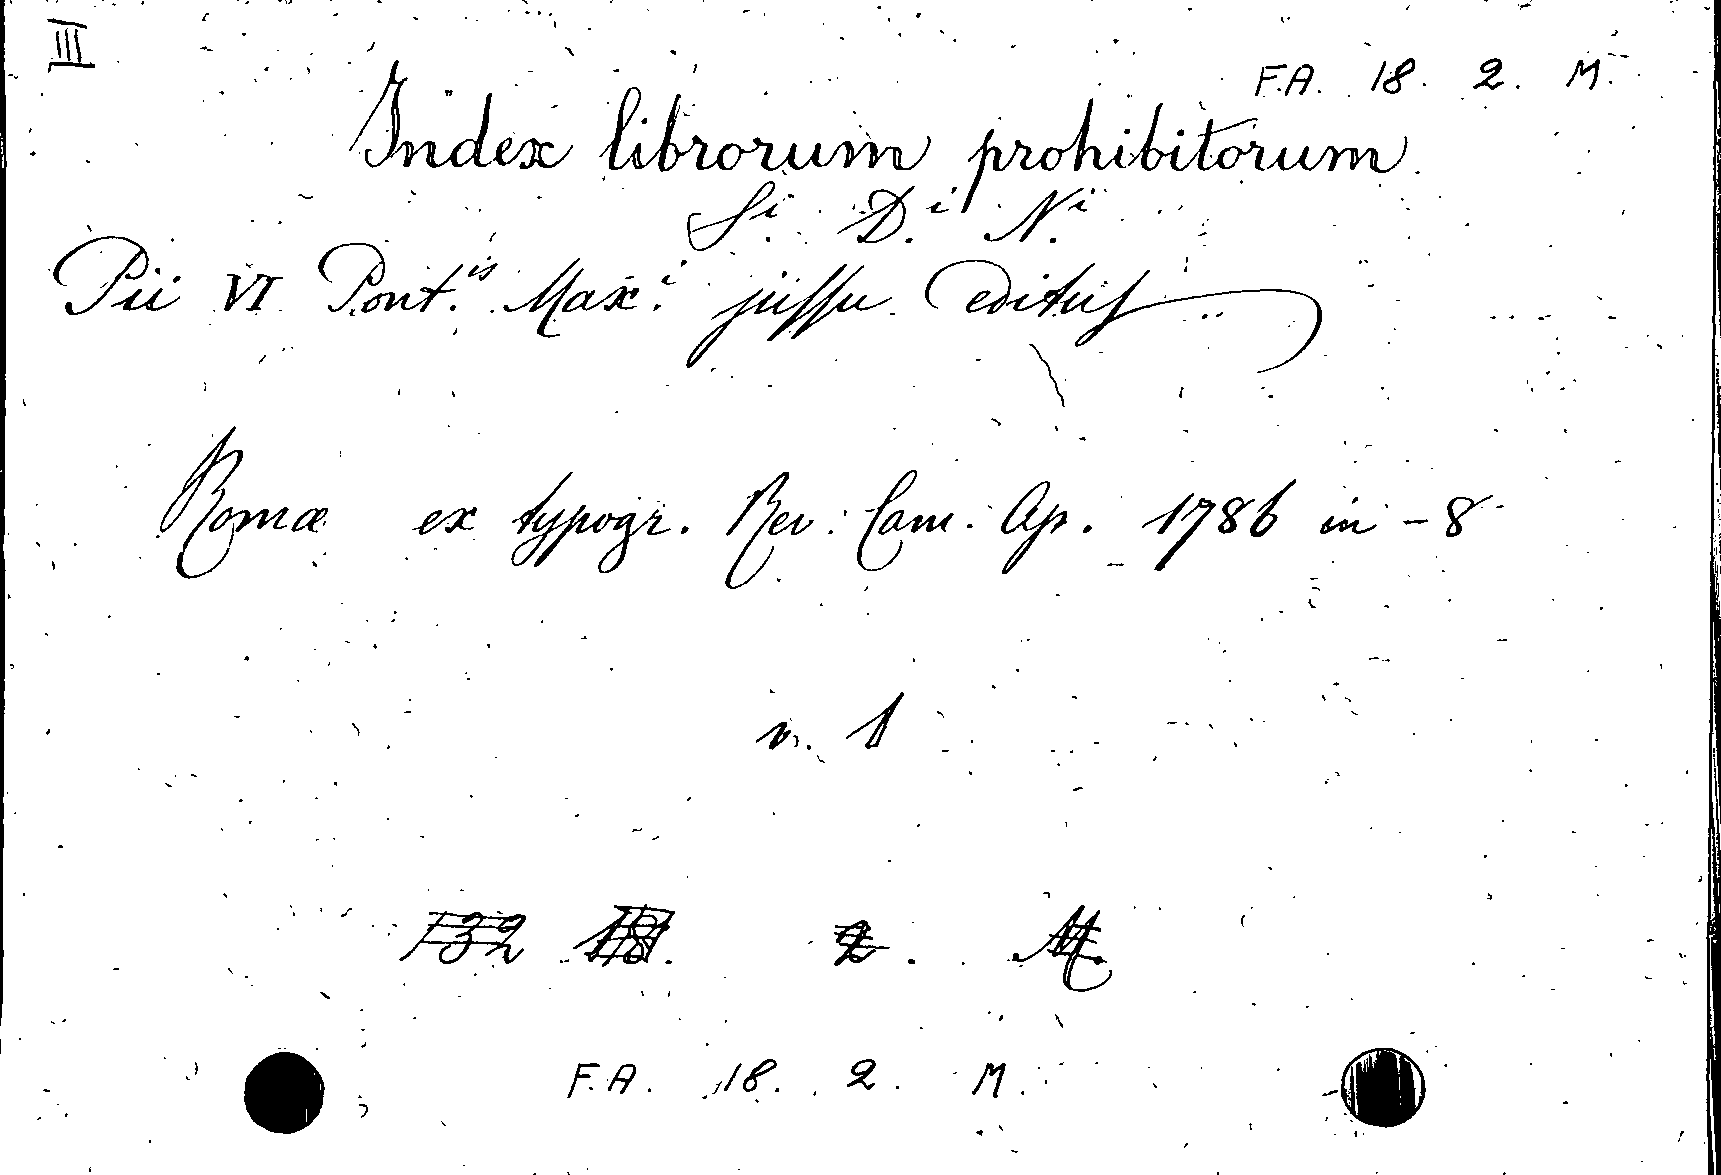 III
F.A. 18. 2. M.
Index librorum prohibitorum
Si. D.i N.i
Pii VI Pont.is Max.i jussu editus
Romæ ex typogr. Rev. Cam. Ap. 1786 in-8
v. 1
132 18. 2. M.
F.A. 18. 2. M.